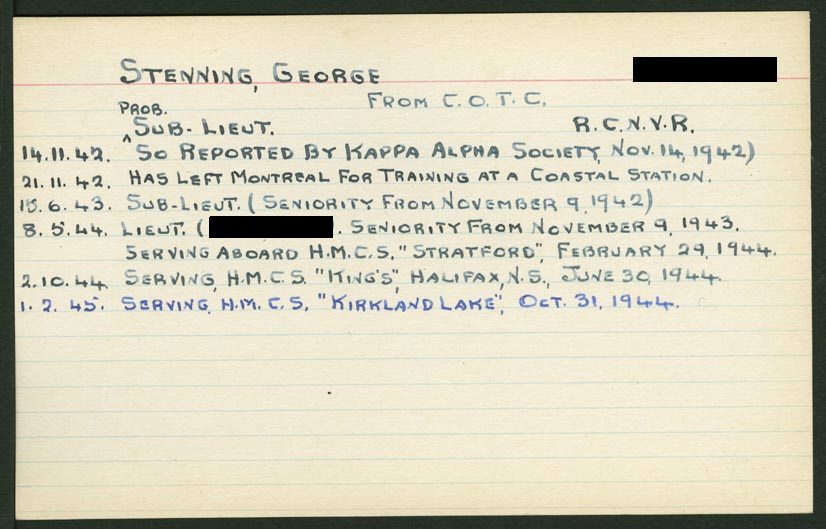 STENNING, GEORGE
FROM C.O.T.C.
PROB.
^SUB-LIEUT. R.C.N.V.R.
14.11.42. SO REPORTED BY KAPPA ALPHA SOCIETY, NOV. 14, 1942)
21.11.42. HAS LEFT MONTREAL FOR TRAINING AT A COASTAL STATION.
15.6.43. SUB-LIEUT. (SENIORITY FROM NOVEMBER 9, 1942)
8.5.44. LIEUT. ( . SENIORITY FROM NOVEMBER 9, 1943.
SERVING ABOARD H.M.C.S. "STRATFORD", FEBRUARY 29, 1944.
2.10.44. SERVING, H.M.C.S. "KING'S", HALIFAX, N.S., JUNE 30, 1944.
1.2.45. SERVING, H.M.C.S. "KIRKLAND LAKE", OCT. 31, 1944.